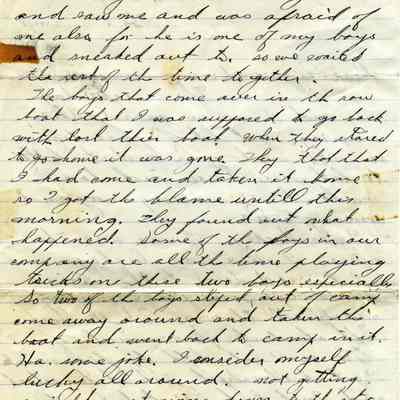 and saw me and was afraid of
me also for he is one of my boys
and sneaked out to. so we waited
the rest of the time together.
The boys that come over in th row
boat that I was supposed to go back
with lost their boat. When they stared
to go home it was gone. They thot that
I had come and taken it home
so I got the blame untill this
morning. They found out what
happened. Some of the boys in our
company are all the time playing
tricks on these two boys especially
So two of the boys sliped out of camp
come away around and taken this
boat and went back to camp in it.
Ha. some joke. I consider myself
lucky all around. not getting